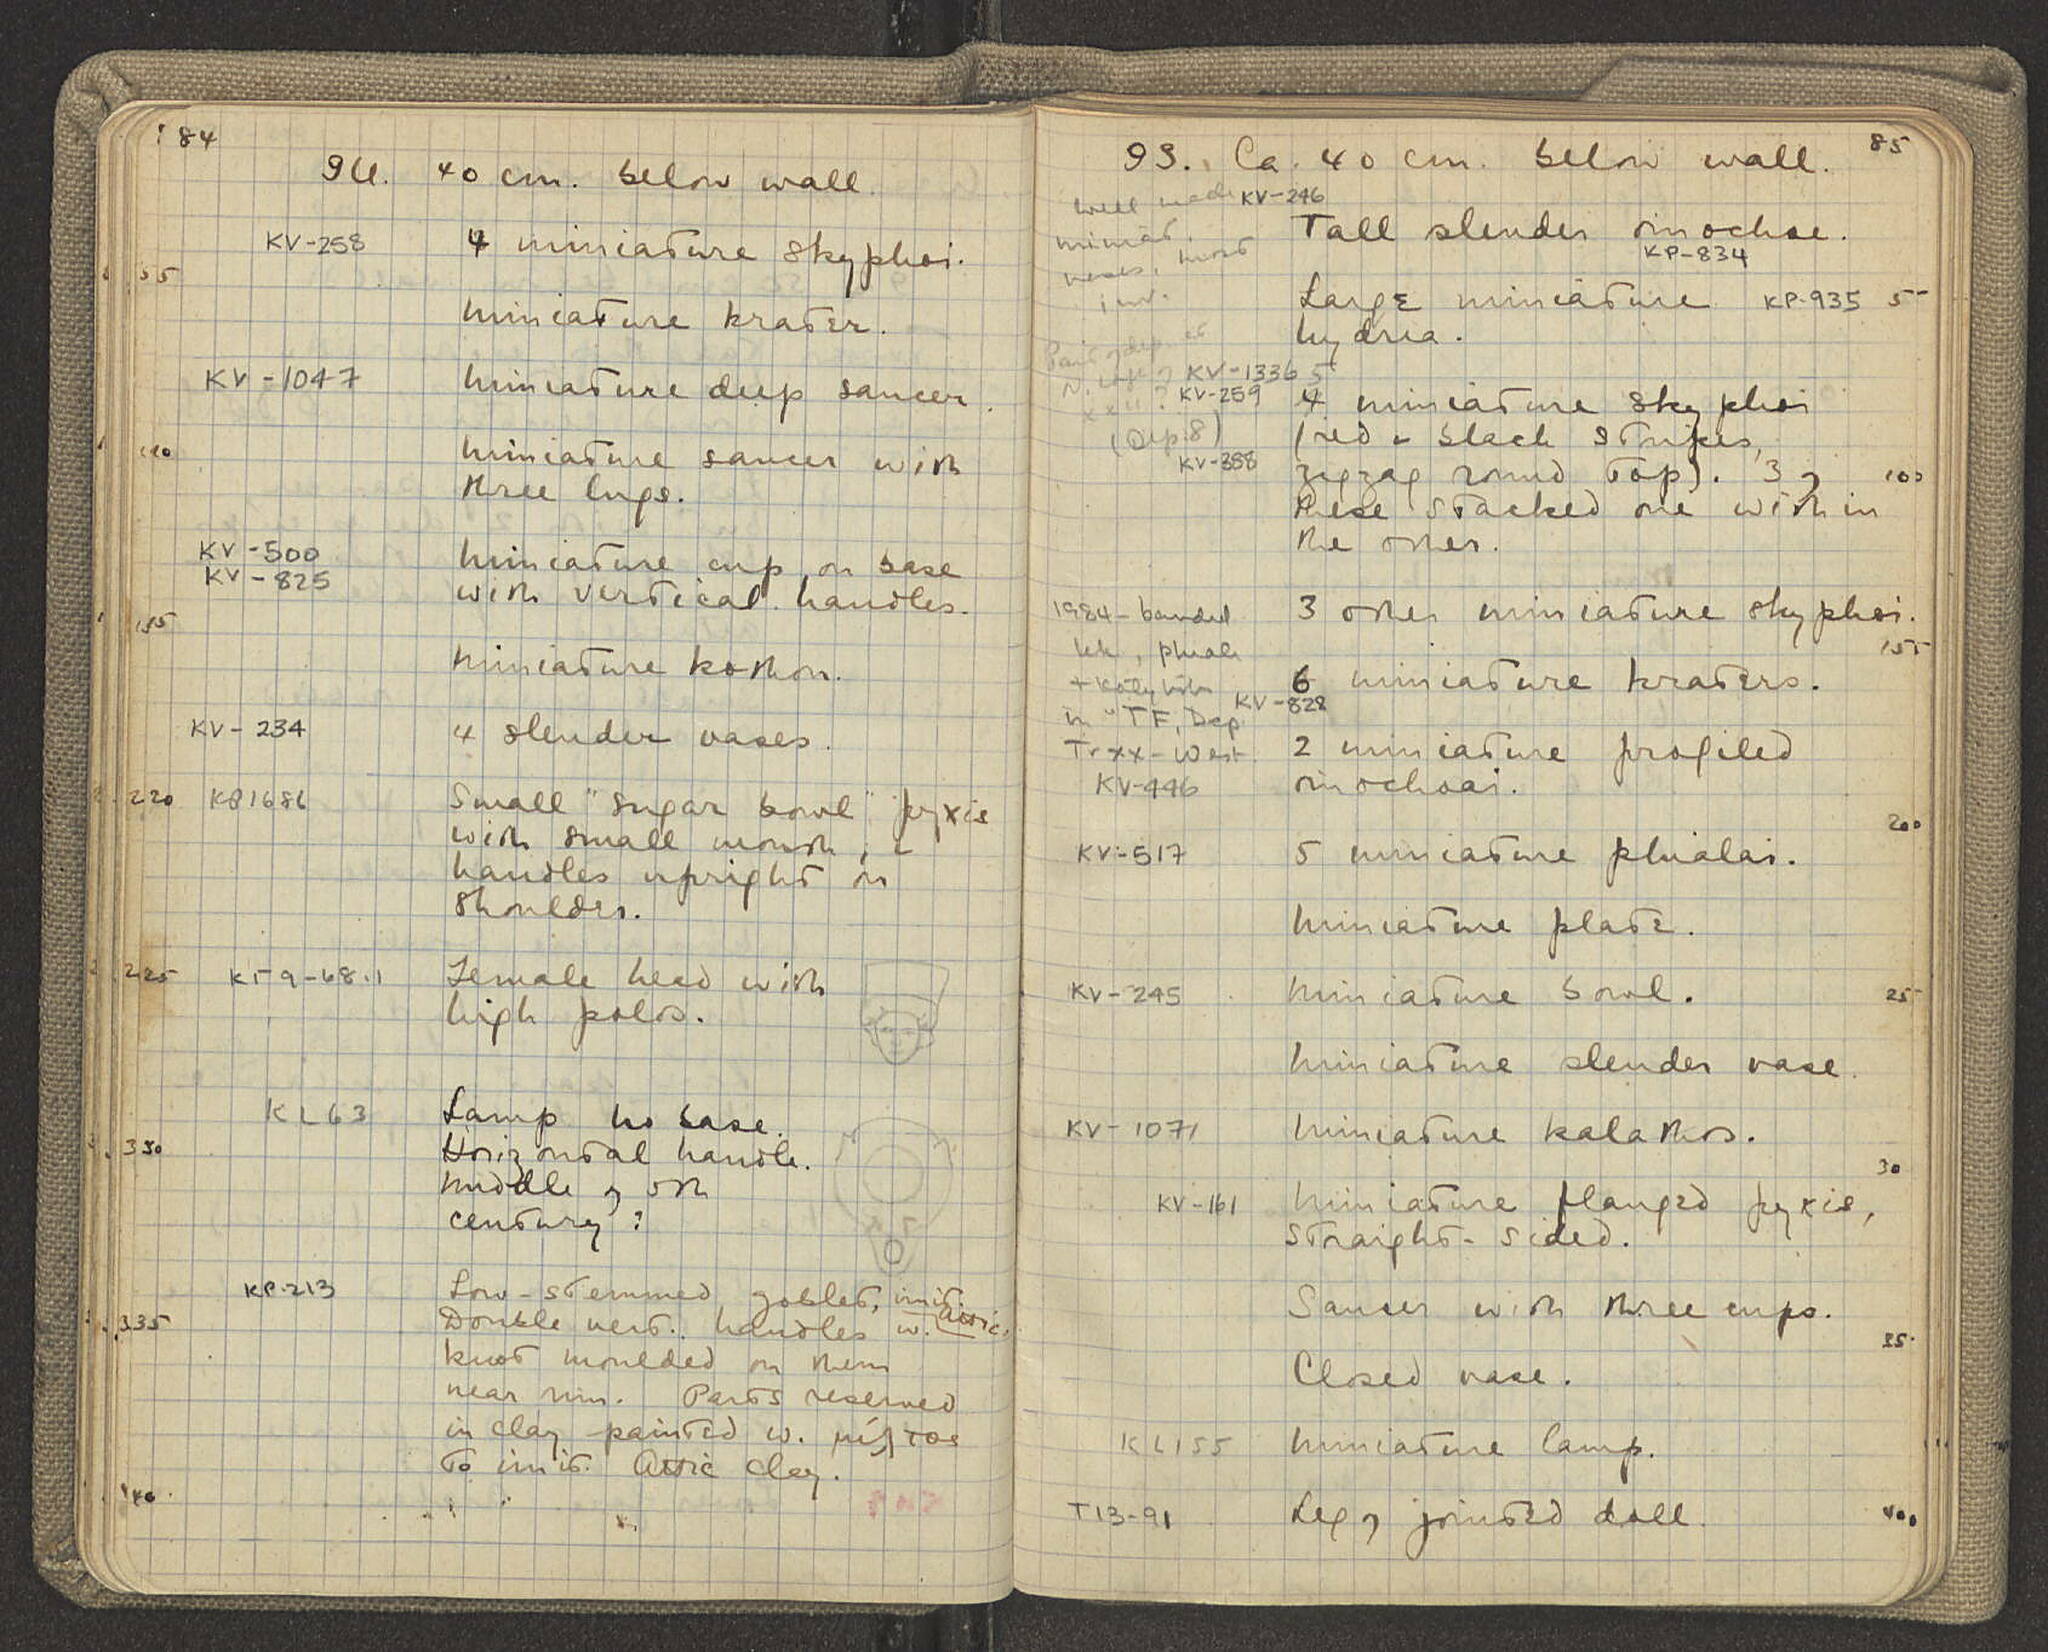 84
9U. 40 cm. below wall.
KV-258 4 miniature skyphoi.
miniature krater.
KV-1047 miniature deep saucer.
miniature saucer with
three lugs.
KV-500 miniature cup on base
KV-825 with vertical handles.
miniature kothon.
KV-234 4 slender vases.
220 Small "sugar bowl" pyxis
with small mouth,
handles upright on
shoulder.
225 Female head with
high polos.
KL63 Lamp no base.
Horizontal handle.
middle of 5th
century?
KP-213 Low-stemmed goblet, imit. Attic.
335 Double vert. handles w.
knot moulded on them
near rim. Parts reserved
in clay painted w. μίλτος
to imit. Attic clay.
85
Ca. 40 cm. below wall.
well made KV-246
miniat. Tall slender oinochoe.
vases, most KP-834
inv. Large miniature KP-935 5
hydria.
KV-1336 5
KV-259 4 miniature skyphoi
(Dep. 8) (red & black stripes,
KV-388 zigzag round top). 3 of 100
these stacked one within
the other.
1984- banded 3 other miniature skyphoi.
lek, phiale
6 miniature kraters.
KV-828
in "TF, Dep
Tr xx-West 2 miniature profiled
KV-446 oinochoai.
200
KV-517 5 miniature phialai.
miniature plate.
KV-245 miniature bowl. 25
miniature slender vase.
KV-1071 miniature kalathos.
30
KV-161 miniature flanged pyxis,
straight-sided.
Saucer with three cups.
35
Closed vase.
KL155 miniature lamp.
T13-91 Leg of jointed doll. 400